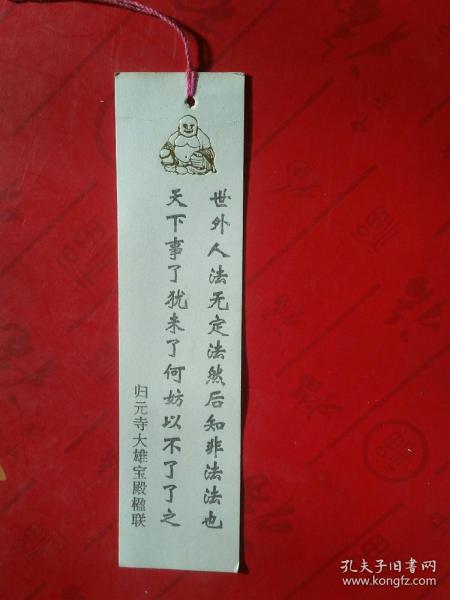 世外人法无定法然后知非法法也
天下事了犹未了何妨以不了了之
归元寺大雄宝殿楹联
孔夫子旧书网
www.kongfz.com